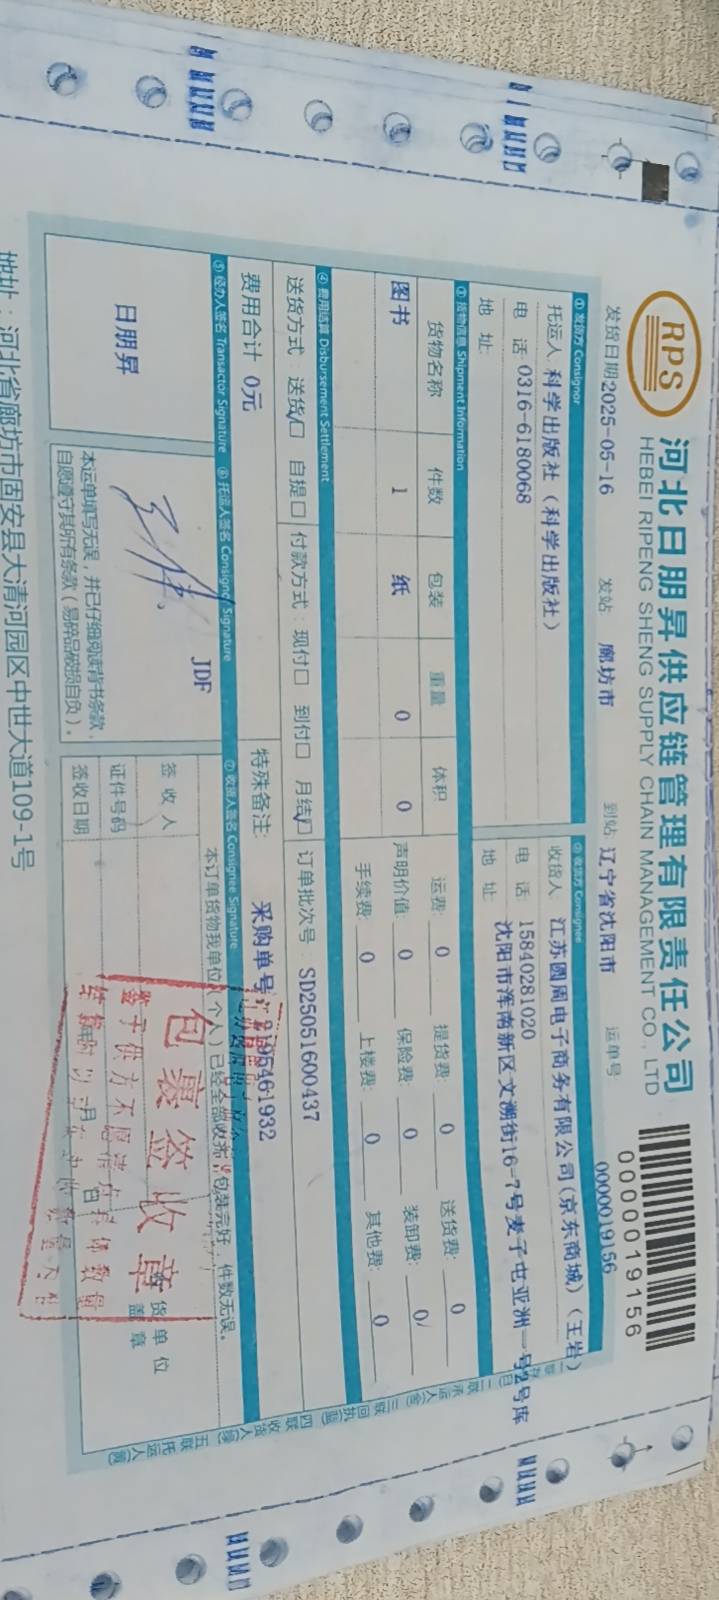 RPS
河北日朋昇供应链管理有限责任公司
HEBEI RIPENG SHENG SUPPLY CHAIN MANAGEMENT CO., LTD
0000019156
发货日期 2025-05-16 发站 廊坊市 到站 辽宁省沈阳市 运单号 0000019156
① 发货方 Consignor ② 收货方 Consignee
托运人 科学出版社（科学出版社） 收货人 江苏圆周电子商务有限公司(京东商城)（王岩）
电 话 0316-6180068 电 话: 15840281020
地 址: 地 址: 沈阳市浑南新区文溯街16-7号麦子屯亚洲一号2号库
③ 货物信息 Shipment Information
货物名称 件数 包装 重量 体积 运费: 0 提货费: 0 送货费: 0
图书 1 纸 0 0 声明价值: 0 保险费: 0 装卸费: 0
手续费: 0 上楼费: 0 其他费: 0
④ 费用结算 Disbursement Settlement
送货方式：送货☑ 自提☐ 付款方式：现付☐ 到付☐ 月结☑ 订单批次号：SD25051600437
费用合计 0元 特殊备注: 采购单号
⑤ 经办人签名 Transactor Signature ⑥ 托运人签名 Consignor Signature ⑦ 收货人签名 Consignee Signature
日朋昇
JDF
本订单货物我单位（个人）已经全部收齐，包装完好，件数无误。
签 收 人
证件号码
签收日期 月 日
货单位
盖章
包裹签收章
本运单填写无误，并已仔细阅读背书条款，
自愿遵守其所有条款（易碎品破损自负）。
地址：河北省廊坊市固安县大清河园区中世大道109-1号